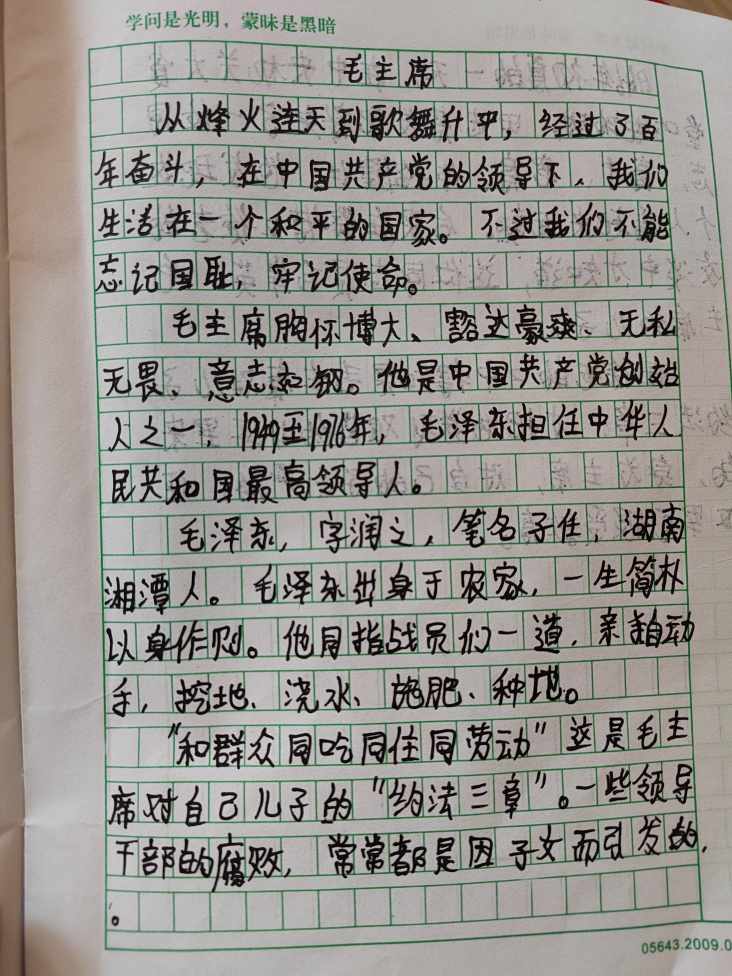 学问是光明，蒙昧是黑暗
毛主席
从烽火连天到歌舞升平，经过了百
年奋斗，在中国共产党的领导下，我们
生活在一个和平的国家。不过我们不能
忘记国耻，牢记使命。
毛主席胸怀博大、豁达豪爽、无私
无畏、意志如钢。他是中国共产党创始
人之一，1949至1976年，毛泽东担任中华人
民共和国最高领导人。
毛泽东，字润之，笔名子任，湖南
湘潭人。毛泽东出身于农家，一生简朴
以身作则。他同指战员们一道，亲自动
手，挖地、浇水、施肥、种地。
“和群众同吃同住同劳动”这是毛主
席对自己儿子的“约法三章”。一些领导
干部的腐败，常常都是因子女而引发的，
。
05643.2009.0